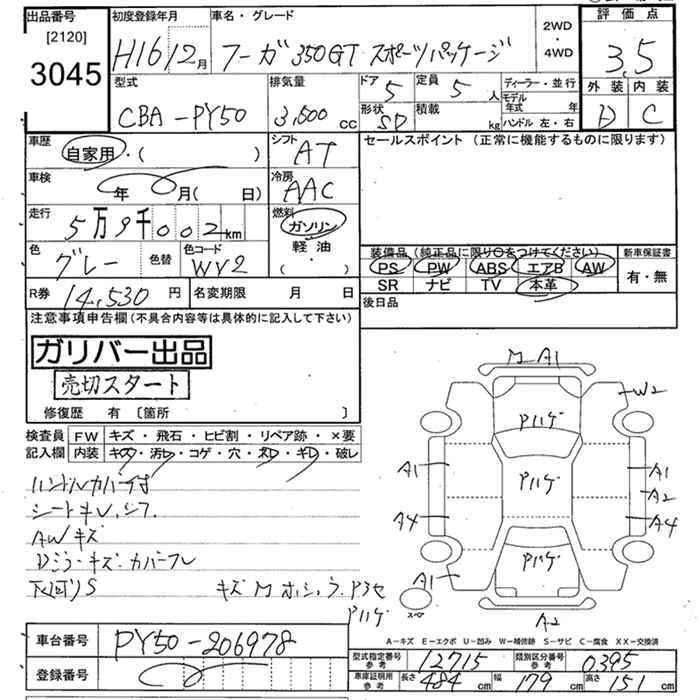 出品番号
[2120]
3045
初度登録年月
H16 12月
車名・グレード
フーガ 350GT スポーツパッケージ
2WD
・
4WD
評価点
3.5
外装 内装
D C
型式
CBA-PY50
排気量
3,500 cc
ドア 5
定員 5 人
形状 SD
積載 kg
ディーラー・並行
モデル年式 年
ハンドル 左・右
車歴
自家用・( )
シフト
AT
車検
年 月( 日)
冷房
AAC
走行
5万9千002km
燃料
ガソリン
軽油
( ・ )
色
グレー
色替
色コード
WV2
R券 14,530 円
名変期限 月 日
セールスポイント (正常に機能するものに限ります)
装備品 (純正品に限り○をつけてください)
PS PW ABS エアB AW
SR ナビ TV 本革
新車保証書
有・無
後日品
注意事項申告欄(不具合内容等は具体的に記入して下さい)
ガリバー出品
売切スタート
修復歴 有 〔箇所 〕
検査員記入欄
FW キズ・飛石・ヒビ割・リペア跡・×要
内装 キズ・汚レ・コゲ・穴・スレ・キレ・破レ
ハンドルカバー付
シートキレ、シワ
AWキズ
Dミラーキズ・カバーワレ
下回りS
キズ M
Pハゲ
M A1
W2
Pハゲ
A1
Pハゲ
A1
A2
A4
A4
Pハゲ
A1
スペ
A2
A-キズ E-エクボ U-凹み W-補修跡 S-サビ C-腐食 XX-交換済
車台番号 PY50-206978
登録番号
型式指定番号 参考 12715
類別区分番号 参考 0395
車庫証明用 参考 長さ 484 cm 幅 179 cm 高さ 151 cm